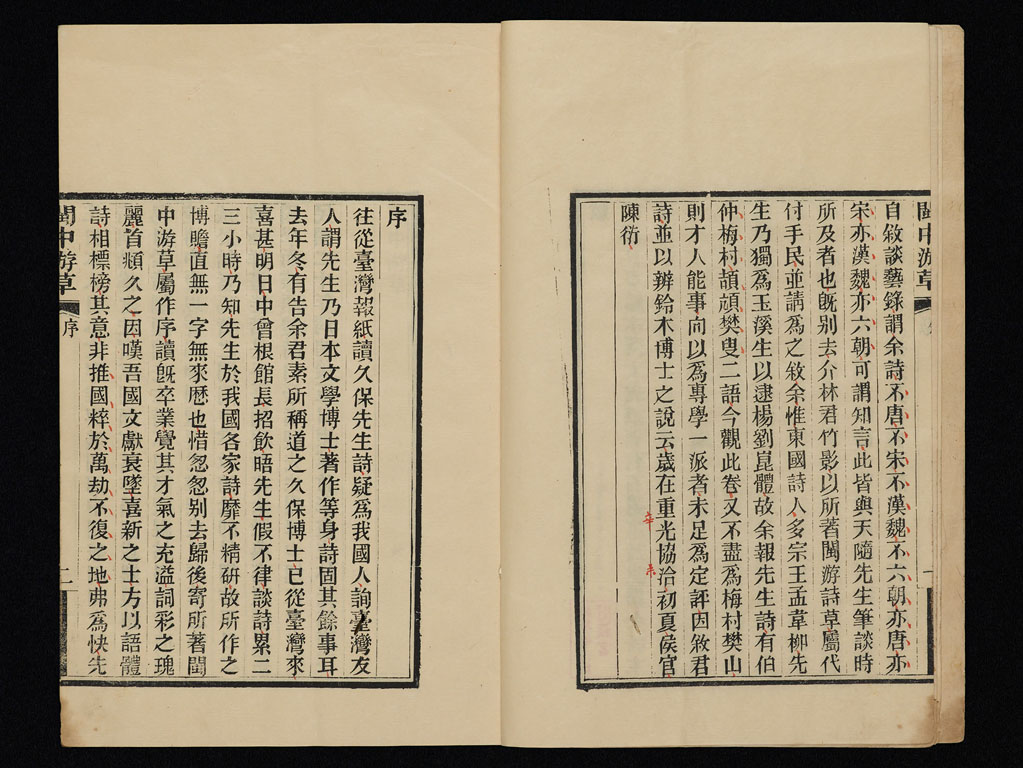 閩中游草
自敘談藝錄謂余詩不唐不宋不漢魏不六朝亦唐亦
宋亦漢魏亦六朝可謂知言此皆與天隨先生筆談時
所及者也旣别去介林君竹影以所著閩游詩草屬代
付手民並請爲之敘余惟東國詩人多宗王孟韋柳先
生乃獨爲玉溪生以逮楊劉崑體故余報先生詩有伯
仲梅村頡頏樊叟二語今觀此卷又不盡爲梅村樊山
則才人能事向以爲專學一派者未足爲定評因敘君
詩並以辨鈴木博士之說云歲在重光協洽初夏侯官
辛未
陳衍
序
往從臺灣報紙讀久保先生詩疑爲我國人詢臺灣友
人謂先生乃日本文學博士著作等身詩固其餘事耳
去年冬有告余君素所稱道之久保博士已從臺灣來
喜甚明日中曾根館長招飲晤先生假不律談詩累二
三小時乃知先生於我國各家詩靡不精硏故所作之
博贍直無一字無來歷也惜怱怱别去歸後寄所著閩
中游草屬作序讀旣卒業覺其才氣之充溢詞彩之瑰
麗首頫久之因嘆吾國文獻衰墜喜新之士方以語體
詩相標榜其意非推國粹於萬劫不復之地弗爲快先
閩中游草
序
二